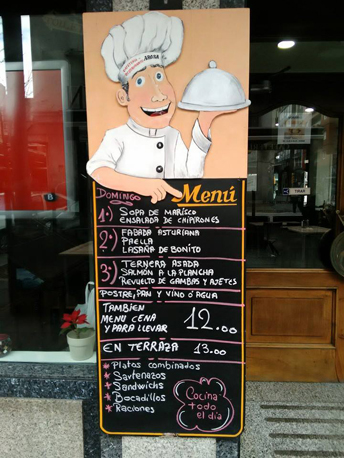 Menú
DOMINGO
1º) SOPA DE MARISCO
ENSALADA DE CHIPIRONES
2º) FABADA ASTURIANA
PAELLA
LASAÑA DE BONITO
3º) TERNERA ASADA
SALMÓN A LA PLANCHA
REVUELTO DE GAMBAS Y AJETES
POSTRE, PAN Y VINO Ó AGUA
TAMBIEN
MENU CENA
Y PARA LLEVAR 12.00
EN TERRAZA 13.00
* Platos combinados
* Sartenazos
* Sandwichs
* Bocadillos
* Raciones
Cocina
todo
el día
TIRAR